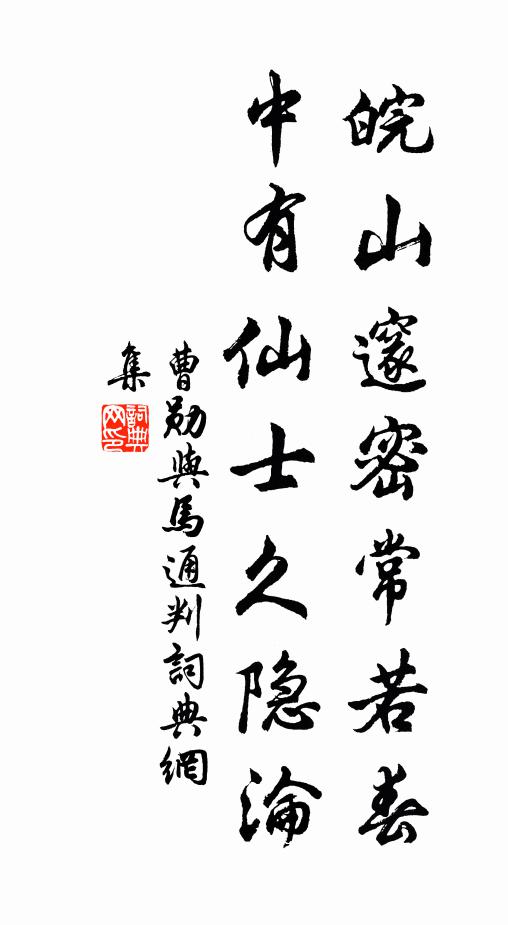 皖山邃密常若春
中有仙士久隐淪
曹勋與馬通判詞典網
集
詞典网印